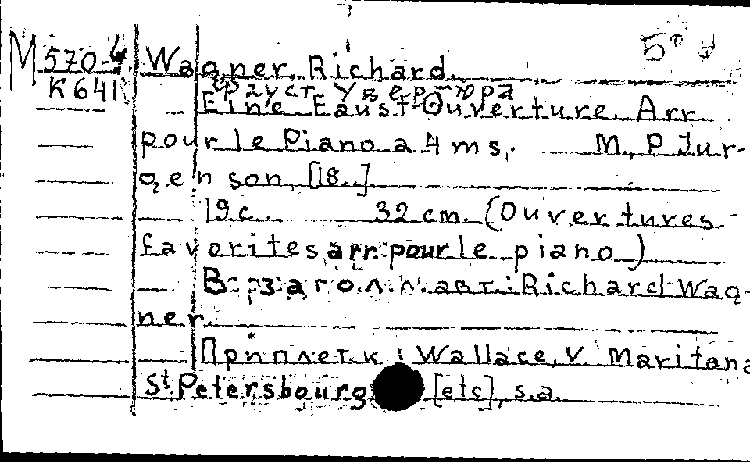 M 570-4
K 641
5°
Wagner, Richard.
Фауст увертюра
Eine Faust-Ouverture. Arr
pour le Piano a 4 ms,. M., P. Jur-
genson, [18..]
19 c. 32 cm. (Ouvertures
favorites arr. pour le piano)
В загол. авт.: Richard Wag-
ner.
Приплет. к: Wallace, V. Maritana
St Petersbourg [etc], s.a.